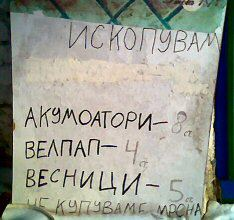 ИСКОПУВАМ
АКУМОАТОРИ-8
ВЕЛПАП-4
ВЕСНИЦИ-5
НЕ КУПУВАМЕ